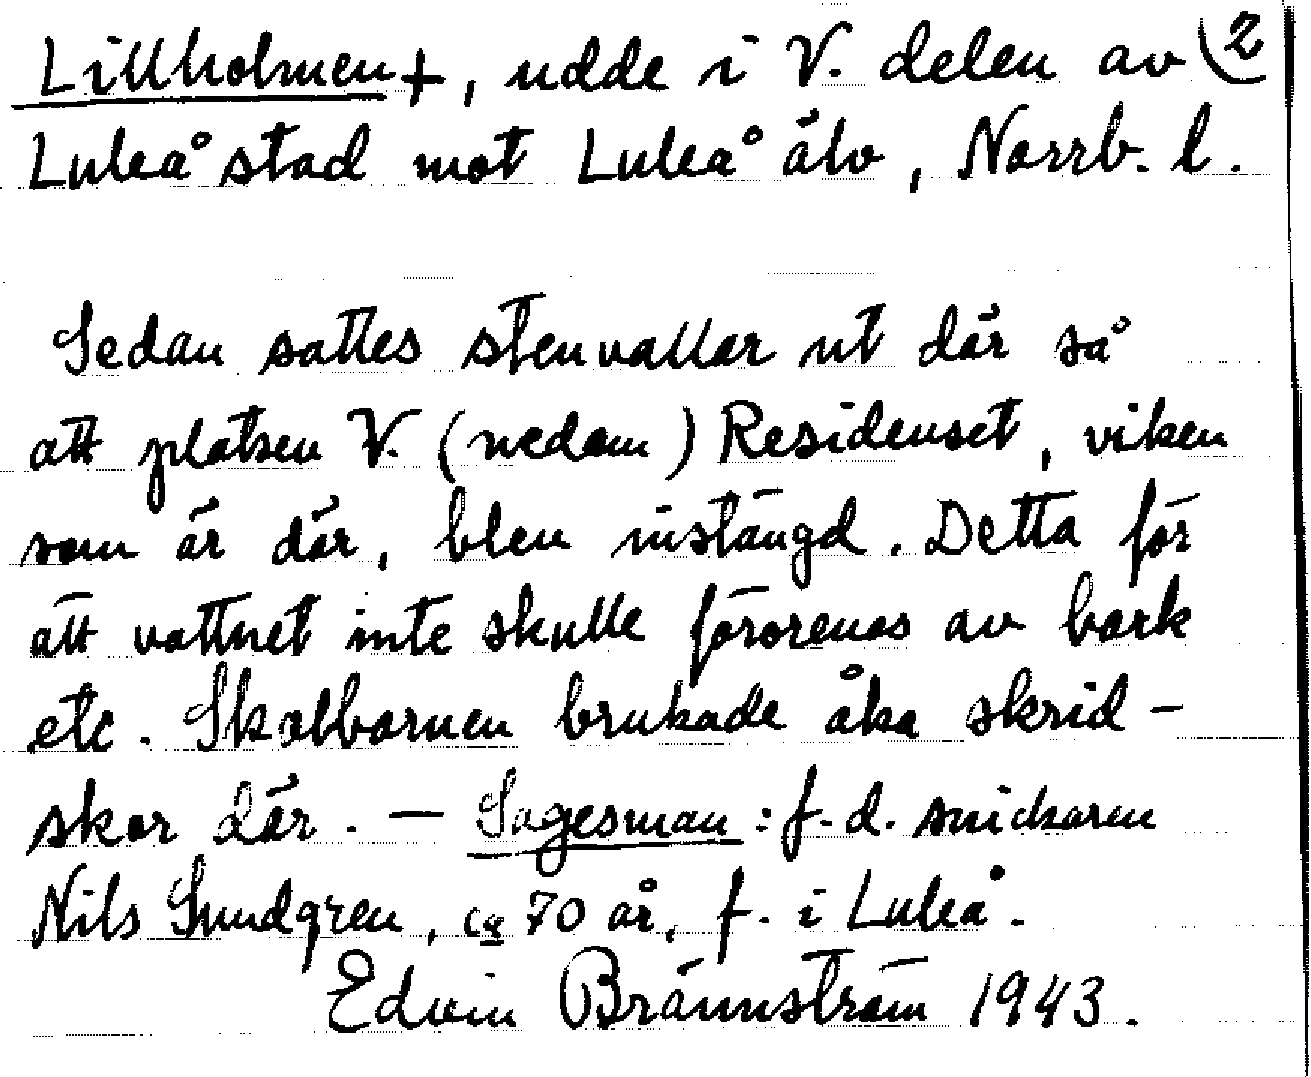 Lillholmen +, udde i V. delen av (2
Luleå stad mot Luleå älv, Norrb. l.
Sedan sattes stenvallar ut där så
att platsen V. (nedom) Residenset, viken
som är där, blev instängd. Detta för
att vattnet inte skulle förorenas av bark
etc. Skolbarnen brukade åka skrid-
skor där. — Sagesman: f.d. snickaren
Nils Sundgren, ca 70 år, f. i Luleå.
Edvin Brännström 1943.